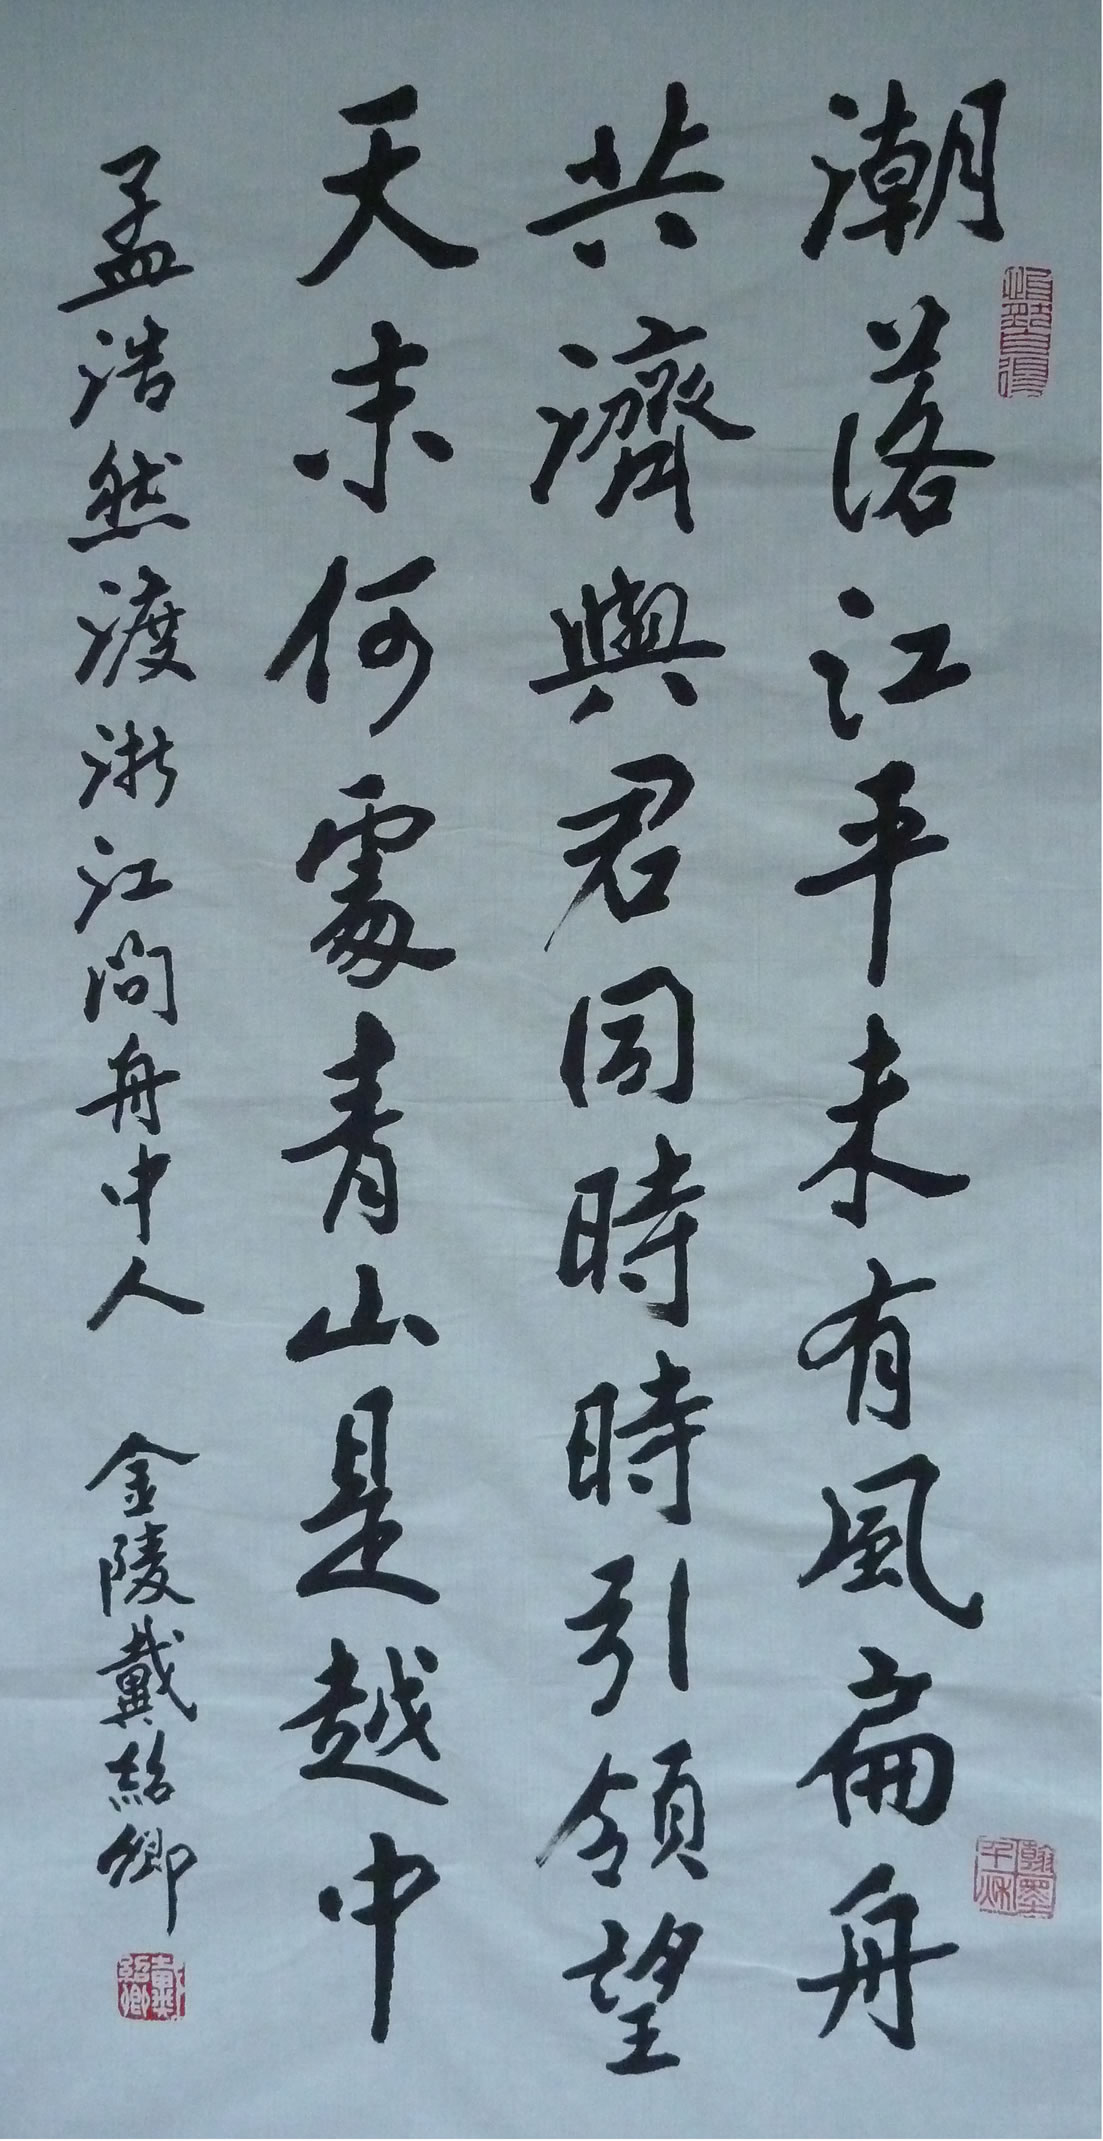 潮落江平未有風扁舟
共濟與君同時時引領望
天末何處青山是越中
孟浩然渡浙江問舟中人
金陵戴紹卿
翰墨千秋
戴紹卿